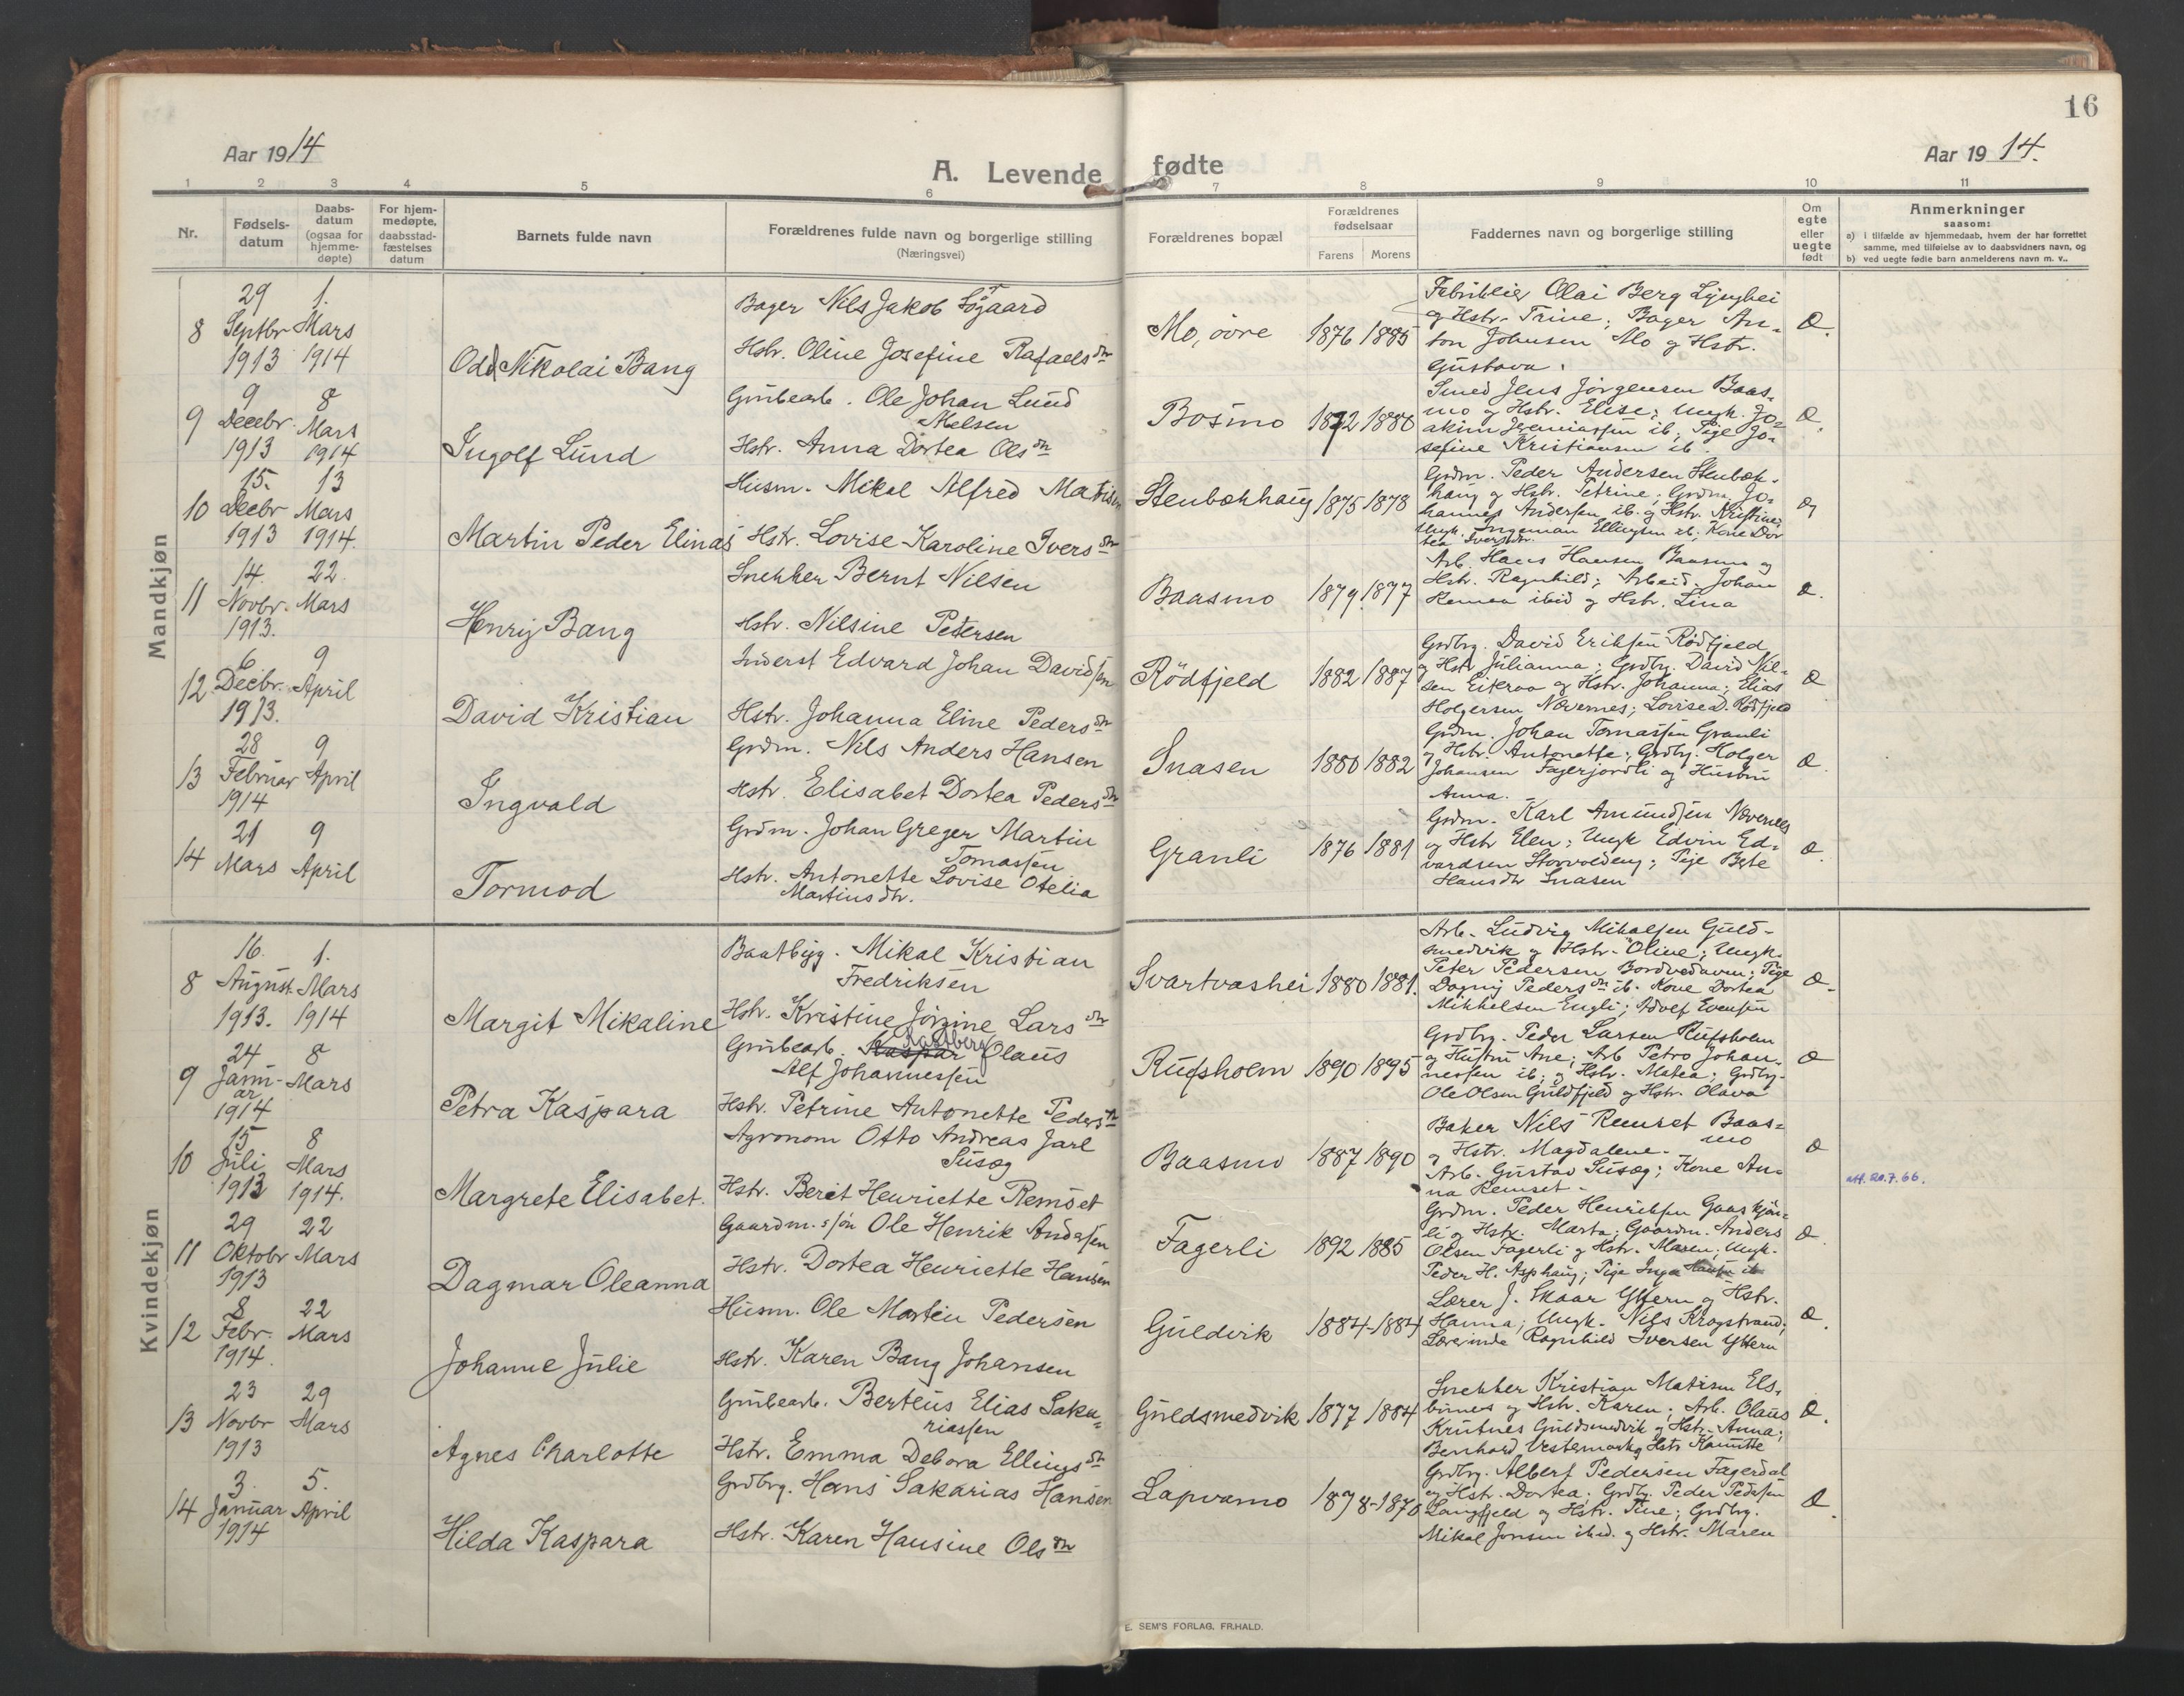 16
Aar 1914
A. Levende fødte
Aar 1914.
1 2 3 4 5 6 7 8 9 10 11
Nr.
Fødsels-
datum
Daabs-
datum
(ogsaa for
hjemme-
døpte)
For hjem-
medøpte,
daabsstad-
fæstelses
datum
Barnets fulde navn
Forældrenes fulde navn og borgerlige stilling
(Næringsvei)
Forældrenes bopæl
Forældrenes
fødselsaar
Farens Morens
Faddernes navn og borgerlige stilling
Om
egte
eller
uegte
født
Anmerkninger
saasom:
a) i tilfælde av hjemmedaab, hvem der har forrettet
samme, med tilføielse av to daabsvidners navn, og
b) ved uegte fødte barn anmelderens navn m. v..
Mandkjøn
8
29
Septbr
1913
1.
Mars
1914
Odd Nikolai Bang
Bager Nils Jakob Søgaard
Hstr. Oline Josefine Rafaelsdtr
Mo, övre
1876 1885
Olai Berg
og Hstr. Trine; Bager An-
ton Johnsen Mo og Hstr.
Gustava.
Æ.
9
9
Decebr
1913
8
Mars
1914
Ingolf Lund
Grubearb. Ole Johan Lund
Abelsen
Hstr. Anna Dortea Olsdtr
Bosmo
1872 1880
Smed Jens Jörgensen Baas-
mo og Hstr. Elise; Ungk. Jo-
akim Jeremiassen ib; Pige Jo-
sefine Kristiansen ib.
Æ.
10
15.
Decbr
1913
13
Mars
1914.
Martin Peder Elinas
Husm. Mikal Alfred Matisen
Hstr. Lovise Karoline Iversdtr
Stenbækhaug
1875 1878
Grdm. Peder Andersen Stenbæk-
haug og Hstr. Petrine; Grdm. Jo-
hannes Andersen ib. og Hstr. Kristine;
Ungk. Ingeman Ellingsen ib; Kone Dor
tea Iversdtr.
Æ
11
14.
Novbr.
1913.
22.
Mars
Henrij Bang
Snekker Bernt Nilsen
Hstr. Nilsine Petersen
Baasmo
1879 1877
Arb. Hans Hansen Baasmo og
Hstr. Ragnhild; Arbeid. Johan
Remaa ibid og Hstr. Lina
Æ.
12
6
Decbr.
1913.
9
April
David Kristian
Inderst Edvard Johan Davidsen
Hstr. Johanna Eline Pedersdtr
Rödfjeld
1882 1887
Grdbrg. David Eriksen Rödfjeld
og Hstr Julianna; Grdbrg. David Nil-
sen Eiteraa og Hstr. Johanna; Elias
Holgersen Nævernes; Lovise D. Rödfjeld
Æ
13
28
Februar
1914
9
April
Ingvald
Grdm. Nils Anders Hansen
Hstr. Elisabet Dortea Pedersdtr
Snasen
1880 1882
Grdm. Johan Tomassen Granli
og Hstr. Antonette; Grdbrg. Holger
Johansen Fagerjordli og Hustru
Anna.
Æ.
14
21
Mars
9
April
Tormod
Grdm. Johan Greger Martin
Tomassen
Hstr. Antonette Lovise Otelia
Martinsdtr.
Granli
1876 1881
Grdm. Karl Amundsen Nævernes
og Hstr Elen; Ungk Edvin Ed-
vardsen; Pige Bete
Hansdtr Snasen
Æ.
Kvindekjøn
8
16.
August
1913.
1.
Mars
1914
Margit Mikaline
Baatbyg. Mikal Kristian
Fredriksen
Hstr. Kristine Jörgine Larsdtr
Svartvashei
1880 1881.
Arb. Ludvig Mikalsen Guld-
smedvik og Hstr. Oline; Ungk.
Peter Pedersen; Pige
Dagny Pedersdtr ib. Kone Dortea
Mikkelsen Engli; Edvef Evensen
Æ.
9
24
Janu-
ar
1914
8
Mars
Petra Kaspara
Grubearb. Kaspar Rodtberg Olaus
Alf Johannessen
Hstr. Petrine Antonette Pedersdtr
Rufsholm
1890 1895
Grdbrg. Peder Larsen Rufsholm
og Hustru Ane; Arb Petro Johan-
nessen ib. og Hstr. Metea; Grdbrg.
Ole Olsen Guldfjeld og Hstr. Olava
Æ
10
15
Juli
1913
8
Mars
1914.
Margrete Elisabet.
Agronom Otto Andreas Jarl
Susæg
Hstr. Berit Henriette Remset
Baasmo
1887 1890
Baker Nils Remset Baas-
mo
og Hstr. Magdalene.
Arb. Gustav Susæg; Kone An-
na Remset.
Æ
att. 20.7.66.
11
29
Oktobr
1913
22
Mars
Dagmar Oleanna
Gaardm.søn Ole Henrik Andersen
Hstr. Dortea Henriette Hansen
Fagerli
1892 1885
Grdm. Peder Henriksen Gaaskjön-
li og Hstr. Marta; Gaardm. Anders
Olsen Fagerli og Hstr. Maren; Ungk.
Peder H. Asphaug; Pige Inga Hansen ib
Æ.
12
8
Febr.
1914.
22
Mars
Johanne Julie
Husm. Ole Martin Pedersen
Hstr. Karen Bang Johansen
Guldvik
1884-1884
Lærer J. Skaar Yttern og Hstr.
Hanna; Ungk. Nils Krogstrand;
Lærerinde Ragnhild Iversen Yttern
Æ.
13
23
Novbr
1913
29
Mars
Agnes Charlotte
Grubearb. Berteus Elias Saka-
riassen
Hstr. Emma Debora Ellingsdtr
Guldsmedvik
1877 1884
Snekker Kristian Matisen Els-
og Hstr. Karen; Arb. Olaus
Krutnes Guldsmedvik og Hstr. Anna;
Bernhard Vestermark og Hstr
Æ.
14
3.
Januar
1914
5.
April
Hilda Kaspara
Grdbrg. Hans Sakarias Hansen
Hstr. Karen Hansine Olsdtr
Lapvamo
1878-1870
Grdbrg. Albert Pedersen Fagerdal
og Hstr. Dortea; Grdbr. Peder Pedersen
Langfjeld og Hstr. Tine; Grdbrg.
Mikal Jonsen ibid. og Hstr. Maren
Æ.
E. SEM'S FORLAG, FR.HALD.